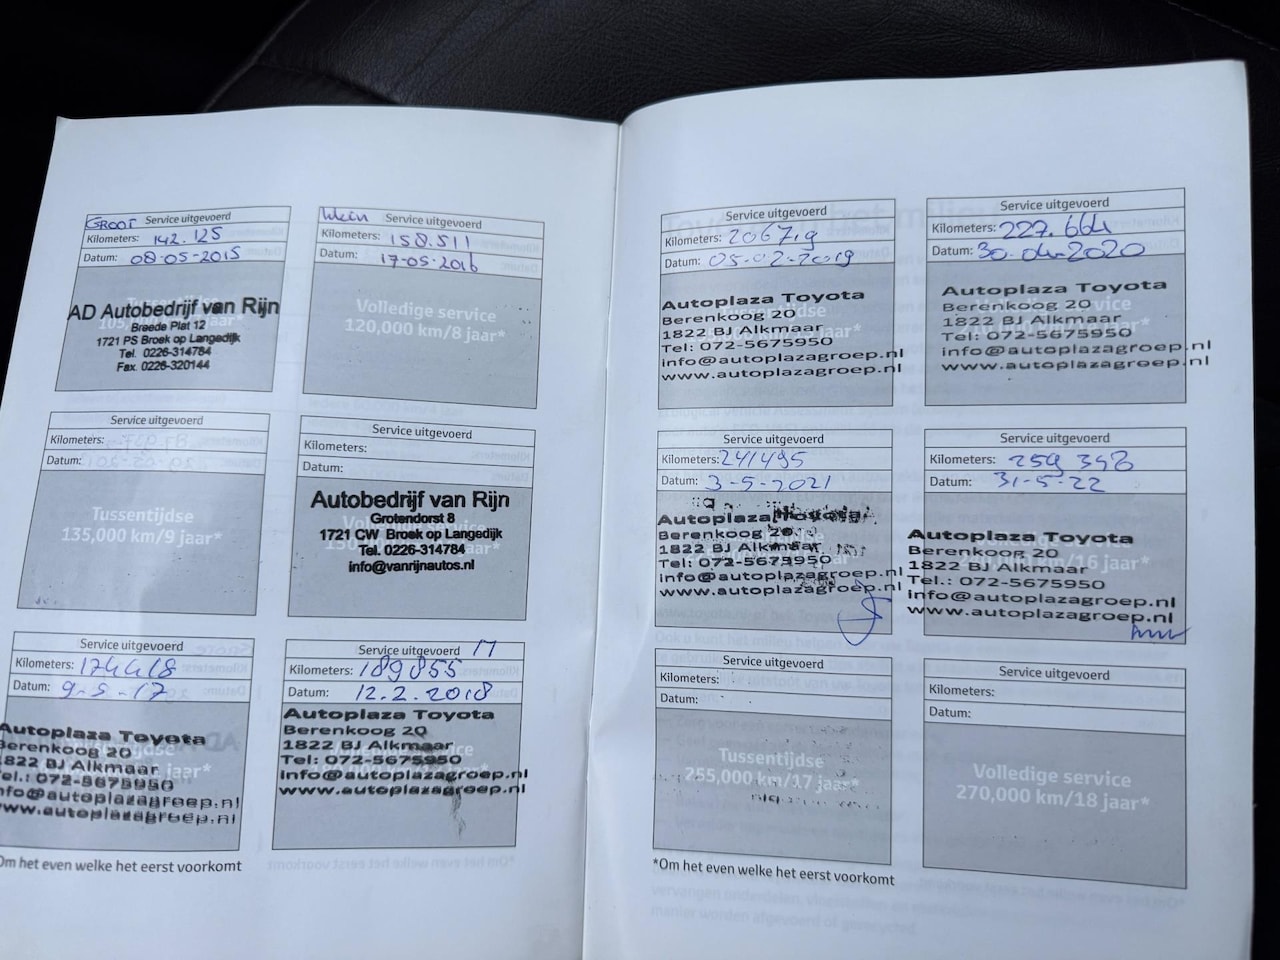 GROOT Service uitgevoerd
Kilometers: 142.125
Datum: 08-05-2015
Tussentijdse
AD Autobedrijf van Rijn
Breede Plat 12
1721 PS Broek op Langedijk
Tel. 0226-314784
Fax. 0226-320144
Klein Service uitgevoerd
Kilometers: 158.511
Datum: 17-05-2016
Volledige service
120,000 km/8 jaar*
Service uitgevoerd
Kilometers:
Datum:
Tussentijdse
135,000 km/9 jaar*
Service uitgevoerd
Kilometers:
Datum:
Autobedrijf van Rijn
Grotendorst 8
1721 CW Broek op Langedijk
Tel. 0226-314784
info@vanrijnautos.nl
Service uitgevoerd
Kilometers: 174418
Datum: 9-5-17
Autoplaza Toyota
Berenkoog 20
1822 BJ Alkmaar
Tel.: 072-5675950
info@autoplazagroep.nl
www.autoplazagroep.nl
Service uitgevoerd
Kilometers: 189855
Datum: 12.2.2018
Autoplaza Toyota
Berenkoog 20
1822 BJ Alkmaar
Tel: 072-5675950
info@autoplazagroep.nl
www.autoplazagroep.nl
*Om het even welke het eerst voorkomt
Service uitgevoerd
Kilometers:
Datum: 05-02-2019
Autoplaza Toyota
Tussentijdse
Berenkoog 20
1822 BJ Alkmaar
Tel: 072-5675950
info@autoplazagroep.nl
www.autoplazagroep.nl
Service uitgevoerd
Kilometers: 227.664
Datum: 2020
Autoplaza Toyota
Berenkoog 20
1822 BJ Alkmaar
Tel: 072-5675950
info@autoplazagroep.nl
www.autoplazagroep.nl
Service uitgevoerd
Kilometers: 241495
Datum: 3-5-2021
Autoplaza Toyota
Berenkoog 20
1822 BJ Alkmaar
Tel: 072-5675950
info@autoplazagroep.nl
www.autoplazagroep.nl
Service uitgevoerd
Kilometers: 259 348
Datum: 31-5-22
Autoplaza Toyota
Berenkoog 20
1822 BJ Alkmaar
Tel.: 072-5675950
info@autoplazagroep.nl
www.autoplazagroep.nl
Service uitgevoerd
Kilometers:
Datum:
Tussentijdse
255,000 km/17 jaar*
Service uitgevoerd
Kilometers:
Datum:
Volledige service
270,000 km/18 jaar*
*Om het even welke het eerst voorkomt